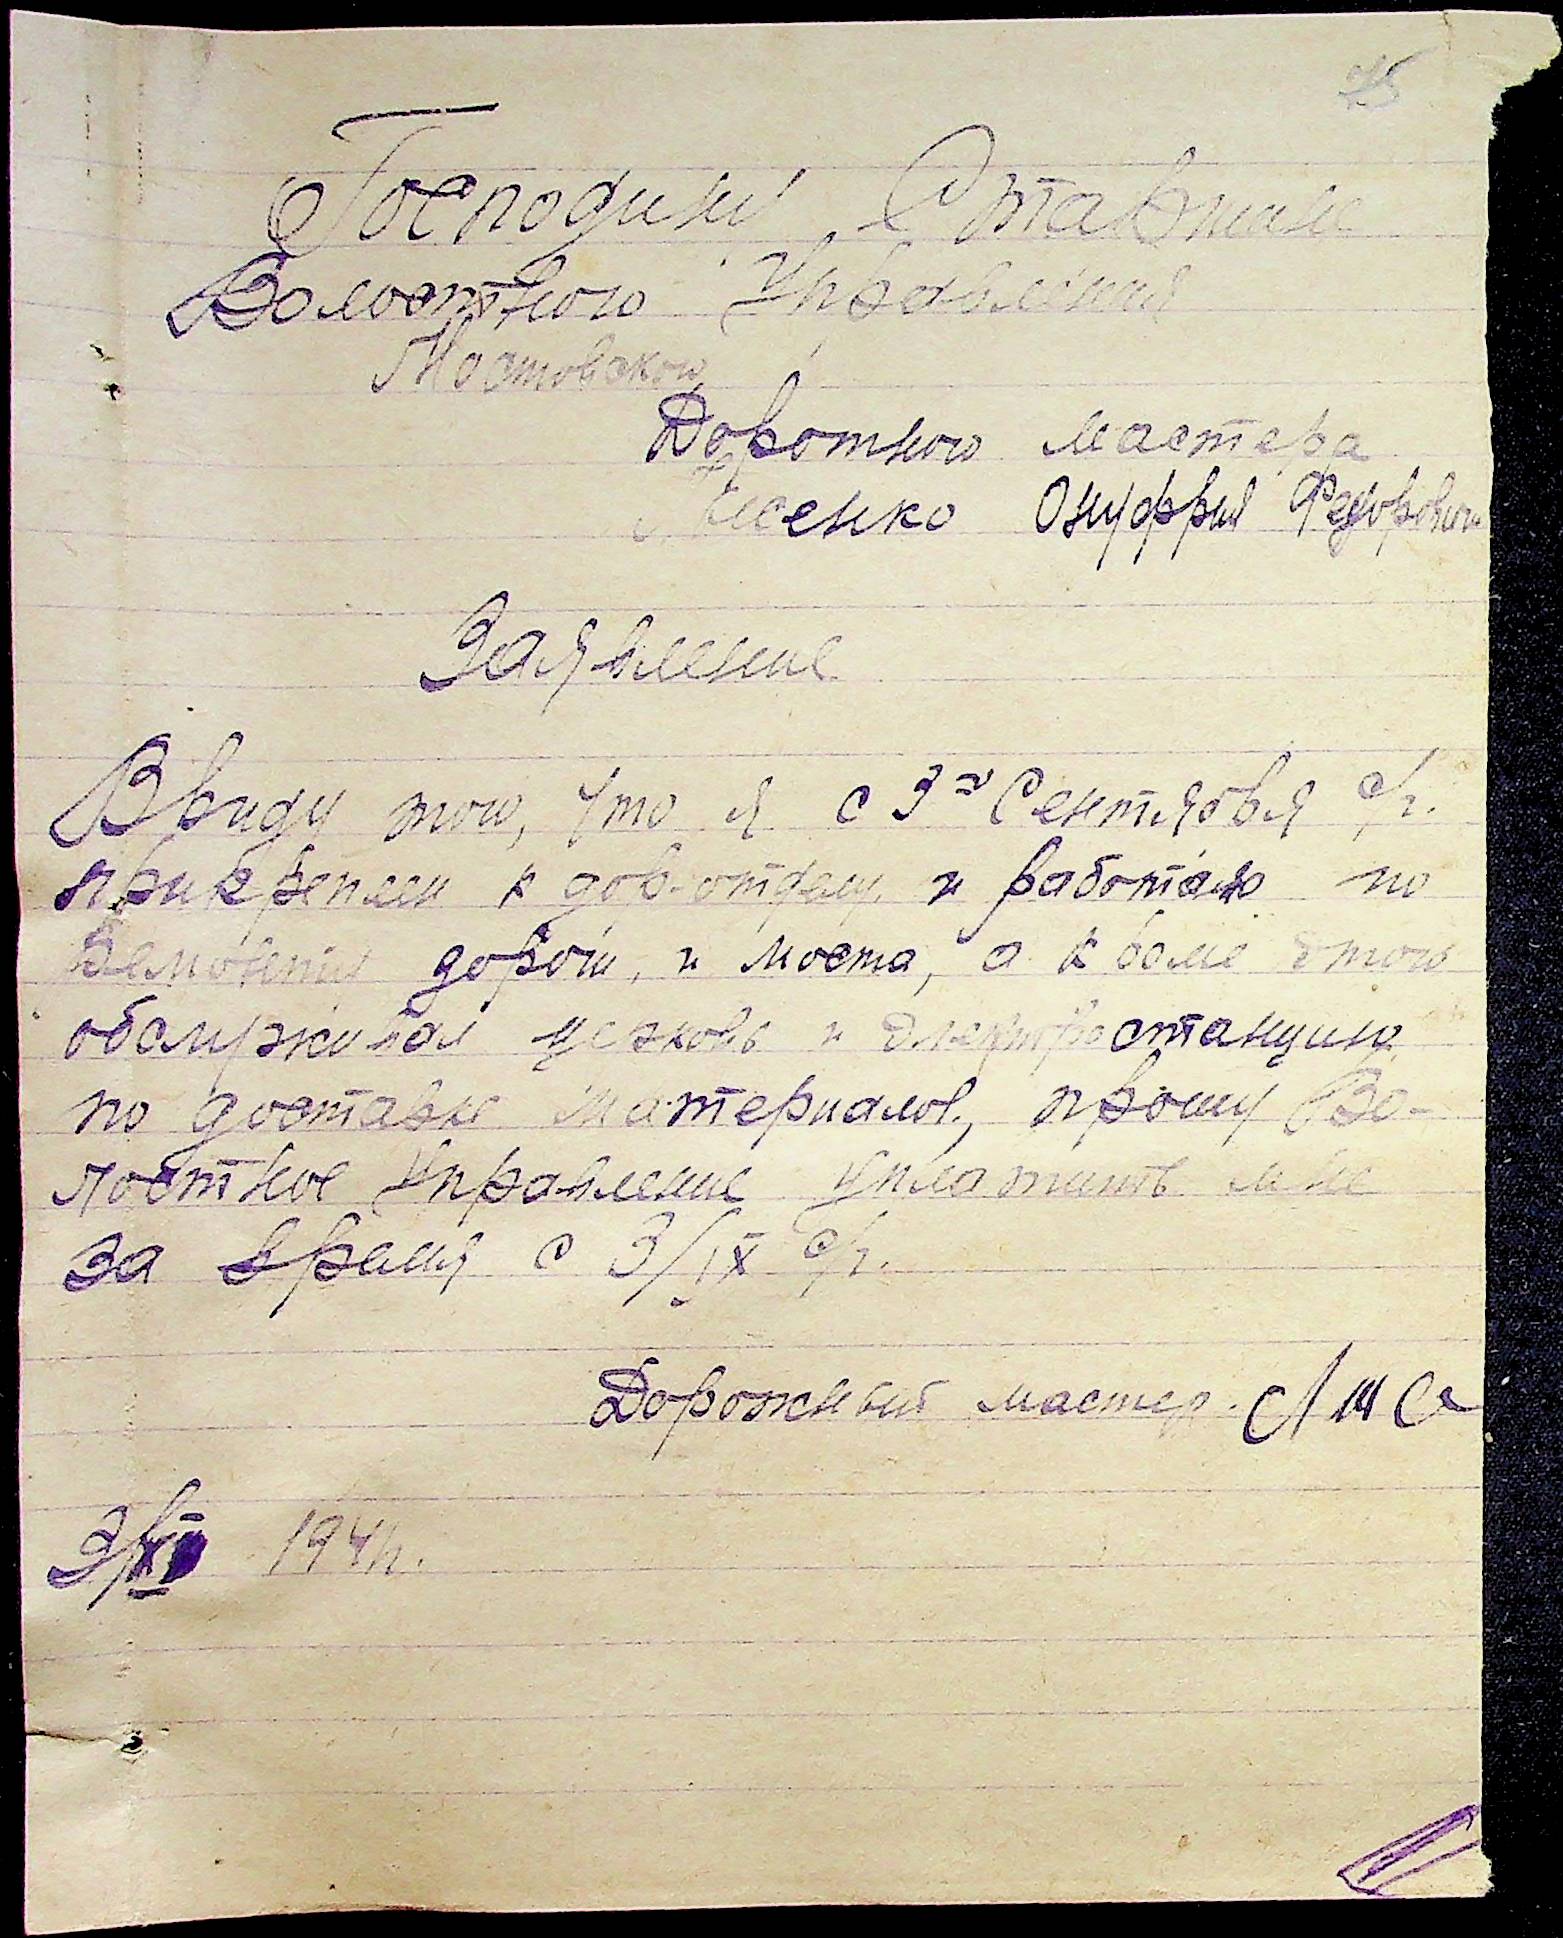 75
Господину Отаршине
Волостного Управления
Мостовской
Дорожного мастера
Лисенко Онуфрия Федорович
Заявление
Ввиду того, что я с 3го Сентября с/г.
прикреплен к дор-отделу и работаю по
Ремонту дорог, и моста, а к боме этого
обслуживал церковь и электростанцию
по доставке материалов, прошу Во-
лостное Управление уплатить мне
за время с 3/IX с/г.
Дорожный мастер.
1941г.